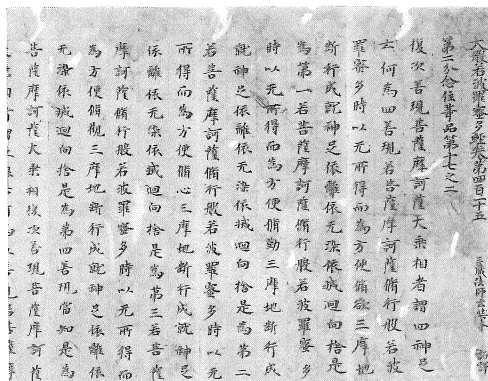 大般若波羅蜜多經卷第四百一十五
三藏法師玄奘奉 詔譯
第二分念住等品第十七之二
復次善現菩薩摩訶薩大乘相者謂四神足
云何為四善現若菩薩摩訶薩脩行般若波
羅蜜多時以无所得而為方便脩欲三摩地
斷行成就神足依離依无染依滅迴向捨是
為第一若菩薩摩訶薩脩行般若波羅蜜多
時以无所得而為方便脩勤三摩地斷行成
就神足依離依无染依滅迴向捨是為第二
若菩薩摩訶薩脩行般若波羅蜜多時以无
所得而為方便脩心三摩地斷行成就神足
依離依无染依滅迴向捨是為第三若菩薩
摩訶薩脩行般若波羅蜜多時以无所得而
為方便脩觀三摩地斷行成就神足依離依
无染依滅迴向捨是為第四善現當知是為
菩薩摩訶薩大乘相復次善現菩薩摩訶薩